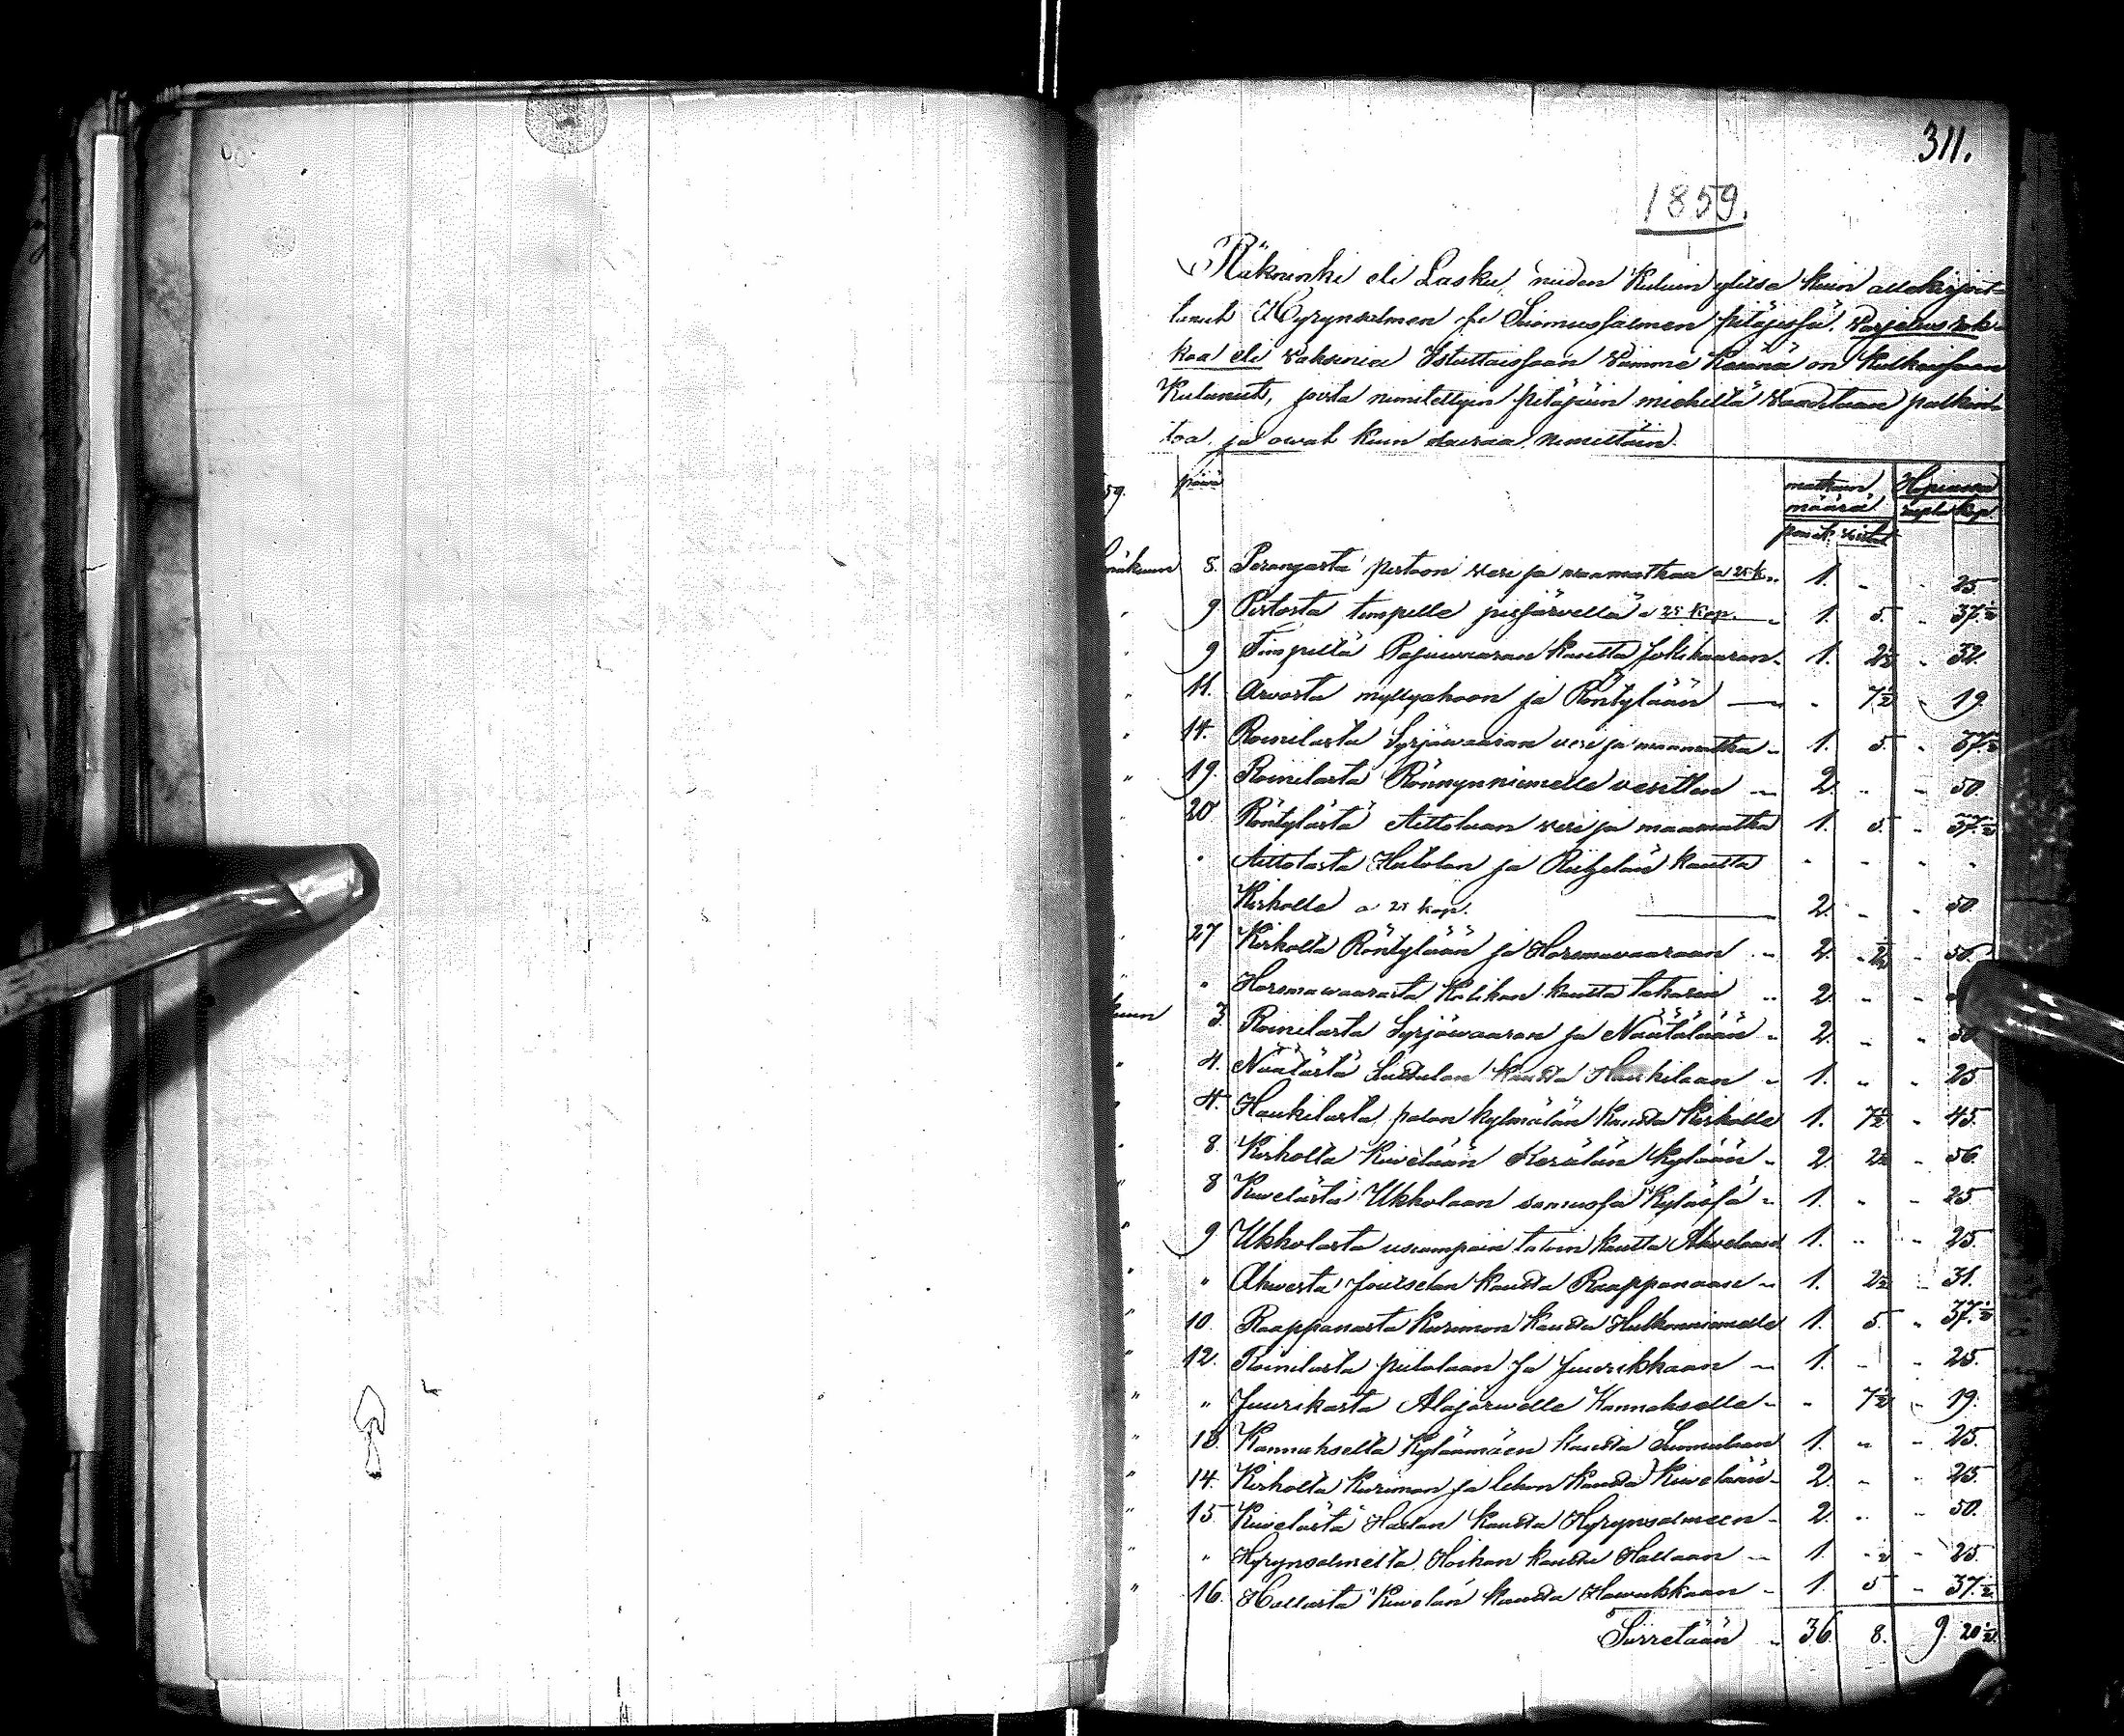 311.
1859.
Räkninki eli Lasku, niiden Kuluin ylitse kuin allekirjoit-
tanut Hyrynsalmen ja Suomussalmen pitäjissä. Varjelus rok-
koa eli vaksinia Istuttaissaan viimme Kesänä on Kulkeissaan
Kulunut, joista nimitettyin pitäjäin miehiltä vaaditaan palkin-
toa, ja owat kuin seuraa nimittäin.
59. päivä matkain määrä Hopeassa
penik. virstat rupla kop.
näkuun 8. Perangasta pistoon vesi ja maamatkaa a 25 k. 1. 25
" 9 Pistosta timpelle pisjärvellä a 25 kop. 1. 5. 37.½
" 9 Timpeltä Pajuvaaran kautta Jokikaaran 1. 2½ 32.
" 11. Arvosta myllyahoon ja Röntylään 7½ 19
" 14. Roinilasta Syrjävaaran vesi ja maamatka 1. 5. 37.½
" 19. Roinilasta Rönnynniemelle vesitten 2. 50
" 20 Röntylästä Aittolaan vesi ja maamatka 1. 5. 37.½
" Aittolasta Hutolan ja Riihelän kautta
Kirkolle a 25 kop. 2. 50
" 27 Kirkolta Röntylään ja Hormavaaraan 2. 2½ 50.
" Hormawaarasta Kolikon kautta takasin 2.
kuun 3. Roinilasta Syrjäwaaran ja Näätälään 2. 50
" 4. Näätästä Siidulan kautta Haukilaan 1. 25
" 4. Haukilasta, palon kylmälän Kautta Kirkolle 1. 7½ 45
" 8. Kirkolta Kivelään Kerälän kylään 2. 2½ 56.
" 8 Kivelästä Ukkolaan samassa Kylässä 1. 25
" 9 Ukkolasta useampain taloin kautta Ahvelaan 1. 25.
" " Ahvesta Jouiselan kautta Raappanaan 1. 2½ 31.
" 10. Raappanasta Kurimon kautta Hulkonniemelle 1. 5 37.½
" 12. Roinilasta piilolaan ja Juurikkaan 1. 25.
" " Juurikasta Alajärwelle Kannakselle 7½ 19.
" 13. Kannukselta Kyläämäen kautta Suomulaan 1. 25
" 14. Kirkolta Kurimon ja lehon kautta Kiwelään 2. 25
" 15 Kiwelästä Hallan kautta Hyrynsalmeen 2. 50.
" " Hyrynsalmelta Hoikan kautta Hallaan 1. 25
" 16. Hallasta Kiwelän kautta Hawukkaan 1. 5 37.½
Siirretään 36. 8. 9. 20½